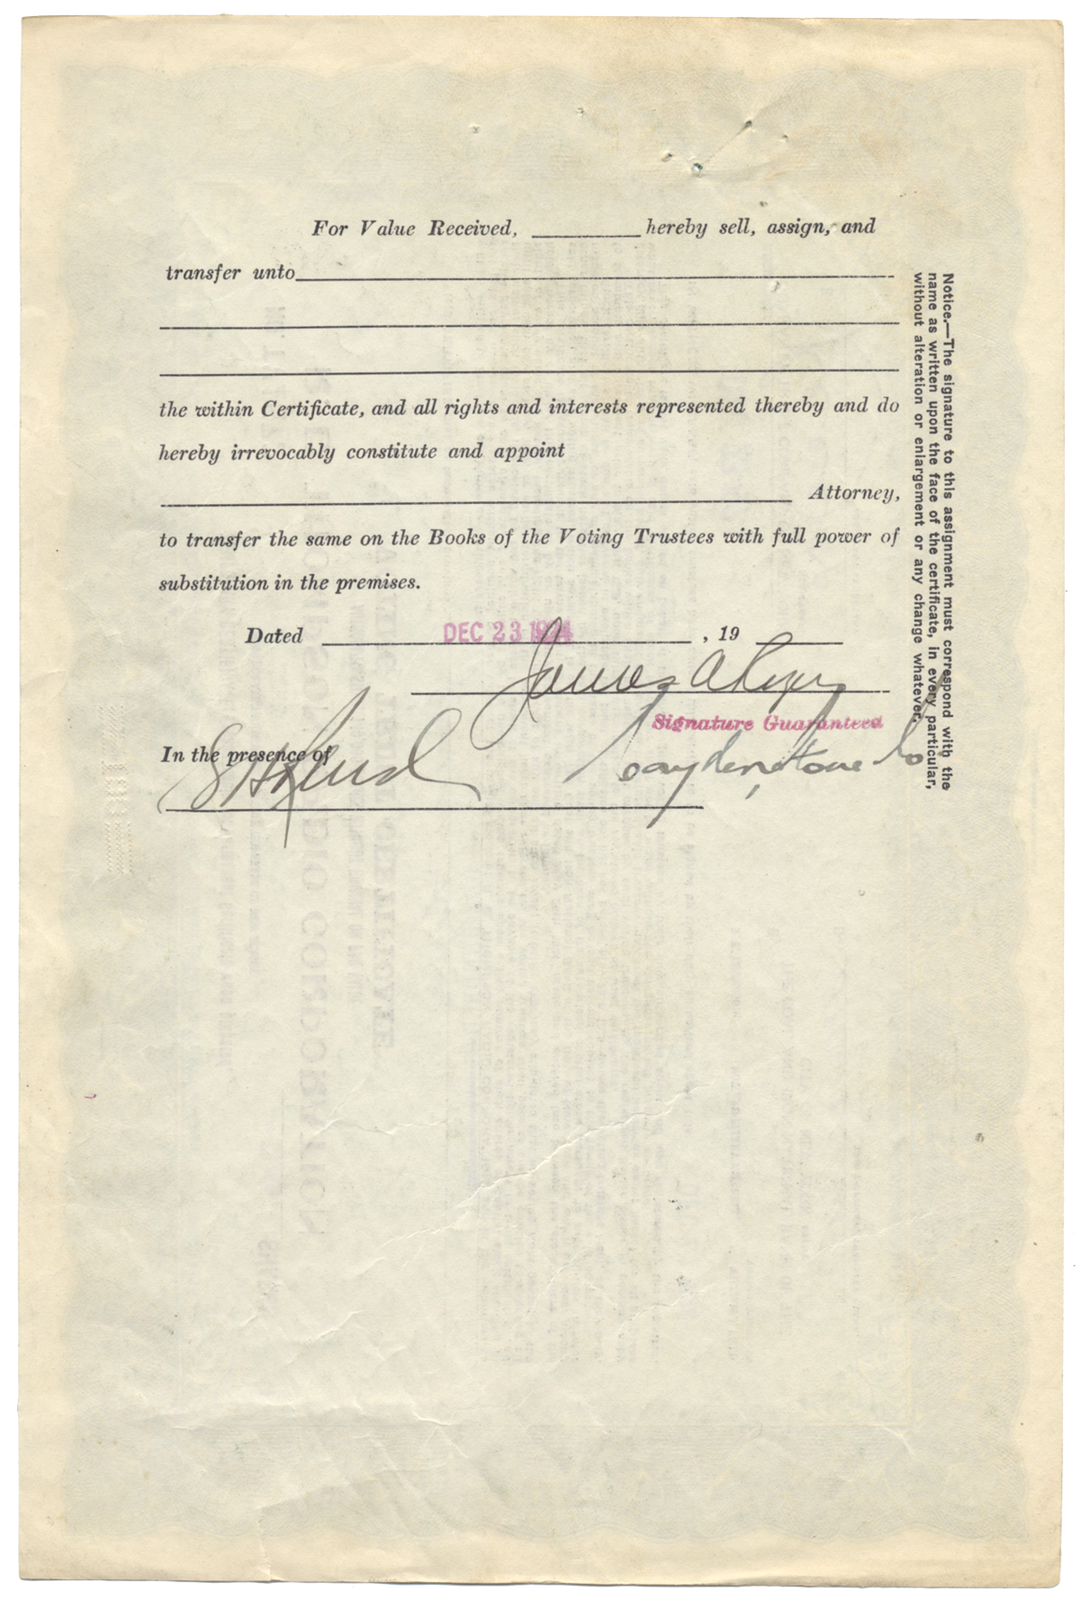 For Value Received, ________ hereby sell, assign, and
transfer unto
the within Certificate, and all rights and interests represented thereby and do
hereby irrevocably constitute and appoint
Attorney,
to transfer the same on the Books of the Voting Trustees with full power of
substitution in the premises.
Dated DEC 23 1924 , 19
James A
Signature Guaranteed
In the presence of
Notice.—The signature to this assignment must correspond with the
name as written upon the face of the certificate, in every particular,
without alteration or enlargement or any change whatever.